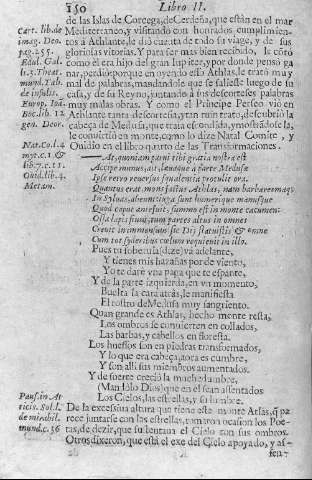 150 Libro II.
de las Islas de Corcega, de Cerdeña, que están en el mar
Mediterraneo, y visitando con honrados cumplimien-
tos à Athlante, le dió cuenta de todo su viage, y de sus
gloriosas vitorias. Y para ser mas bien recibido, le cōtó
como él era hijo del gran Iupiter, y por donde pensó ga
nar, perdió: porque en oyendo esso Athlas, le trató muy
mal de palabras, mandandole que se saliesse luego de su
casa, y de su Reyno, juntando à sus descorteses palabras
muy malas obras. Y como el Principe Perseo viò en
Athlante tanta descortesia, y tan ruin trato, descubriò la
cabeça de Medusa, que traia escondida, y mostrādose la,
le convirtiò en monte, como lo dize Natal Comite, y
Ouidio en el libro quarto de las Transformaciones.
At, quoniam parui tibi gratia nostra est
Accipe munus, ait, læuaque à parte Medusæ
Ipse retro versus squalentia protulit ora.
Quantus erat mons factus Athlas, nam barba comæq;
In syluas, abeunt iuga sunt humerique manusque
Quod caput ante fuit, summo est in monte cacumen:
Ossa lapis fiunt, tum partes altus in omnes
Creuit in immensum sic Dij statuistis & omne
Cum tot syderibus cœlum requieuit in illo.
Pues tu soberuia (dize) và adelante,
Y tienes mis hazañas por de viento,
Yo te daré vna paga que te espante,
Y de la parte izquierda, en vn momento,
Buelta la cara atrás, le manifiesta
El rostro de Medusa muy sangriento.
Quan grande es Athlas, hecho monte resta,
Los ombros se convierten en collados,
Las barbas, y cabellos en floresta.
Los huessos son en piedras transformados,
Y lo que era cabeça, aora es cumbre,
Y son alli sus miembros aumentados.
Y de suerte creció la muchedumbre,
(Mandólo Dios) que en él sean assentados
Los Cielos, las estrellas, y su lumbre.
De la excessiua altura que tiene este monte Atlas, q̃ pa
rece juntarse con las estrellas, tomaron ocasion los Poe-
tas, de dezir, que sustentaua el Cielo con sus ombros.
Otros dixeron, que está el exe del Cielo apoyado, y as-
sen-
Cart. lib. de
imag. Deo.
pag. 255.
Edul. Gal.
li. 3. Theat.
mund. Tab.
de insulis.
Europ. Ioā
Boc. lib. 12
gen. Deor.
Nat. Co. l. 4
myt. c. 1 &
lib. 7. c. 11.
Ouid. lib. 4.
Metam.
Paus. in At
ticis. Sol. l.
de mirabil.
mund. c. 36